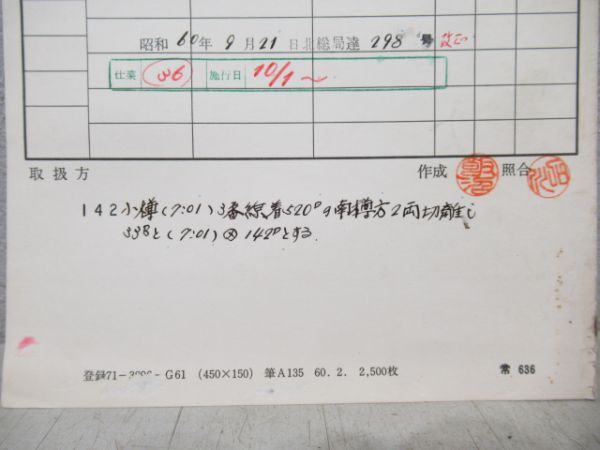 昭和 60年 9月 21日 北総局達 298 号 改正
仕業 36 施行日 10/1〜
取扱方 作成 照合
142 小樽(7:01) 3番線着520Dの南樽方2両切離し
(7:01) 142Dとする.
登録71- - G61 (450×150) 筆A135 60. 2. 2,500枚 常 636